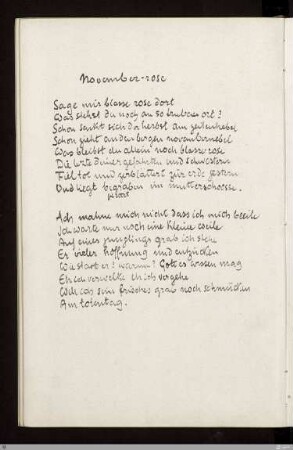 November-rose
Sage mir blasse rose dort
Was stehst du noch an so trubem ort?
Schon senkt sich der herbst am zeitenhebel
Schon zieht an den bergen novembernebel
Was bleibst du allein noch blasse rose
Die letzte deiner gefährten und schwestern
Fiel tot und zerblättert zur erde gestern
Und liegt begraben im mutterschoosse.
Ach mahne mich nicht dass ich mich beeile
Ich warte nur noch eine kleine weile
Auf eines jünglings grab ich stehe
Er vieler hoffnung und entzücken
Wie starb er? warum? Gott es wissen mag
Eh ich verwelke eh ich vergehe
Will ich sein frisches grab noch schmücken
Am totentag.